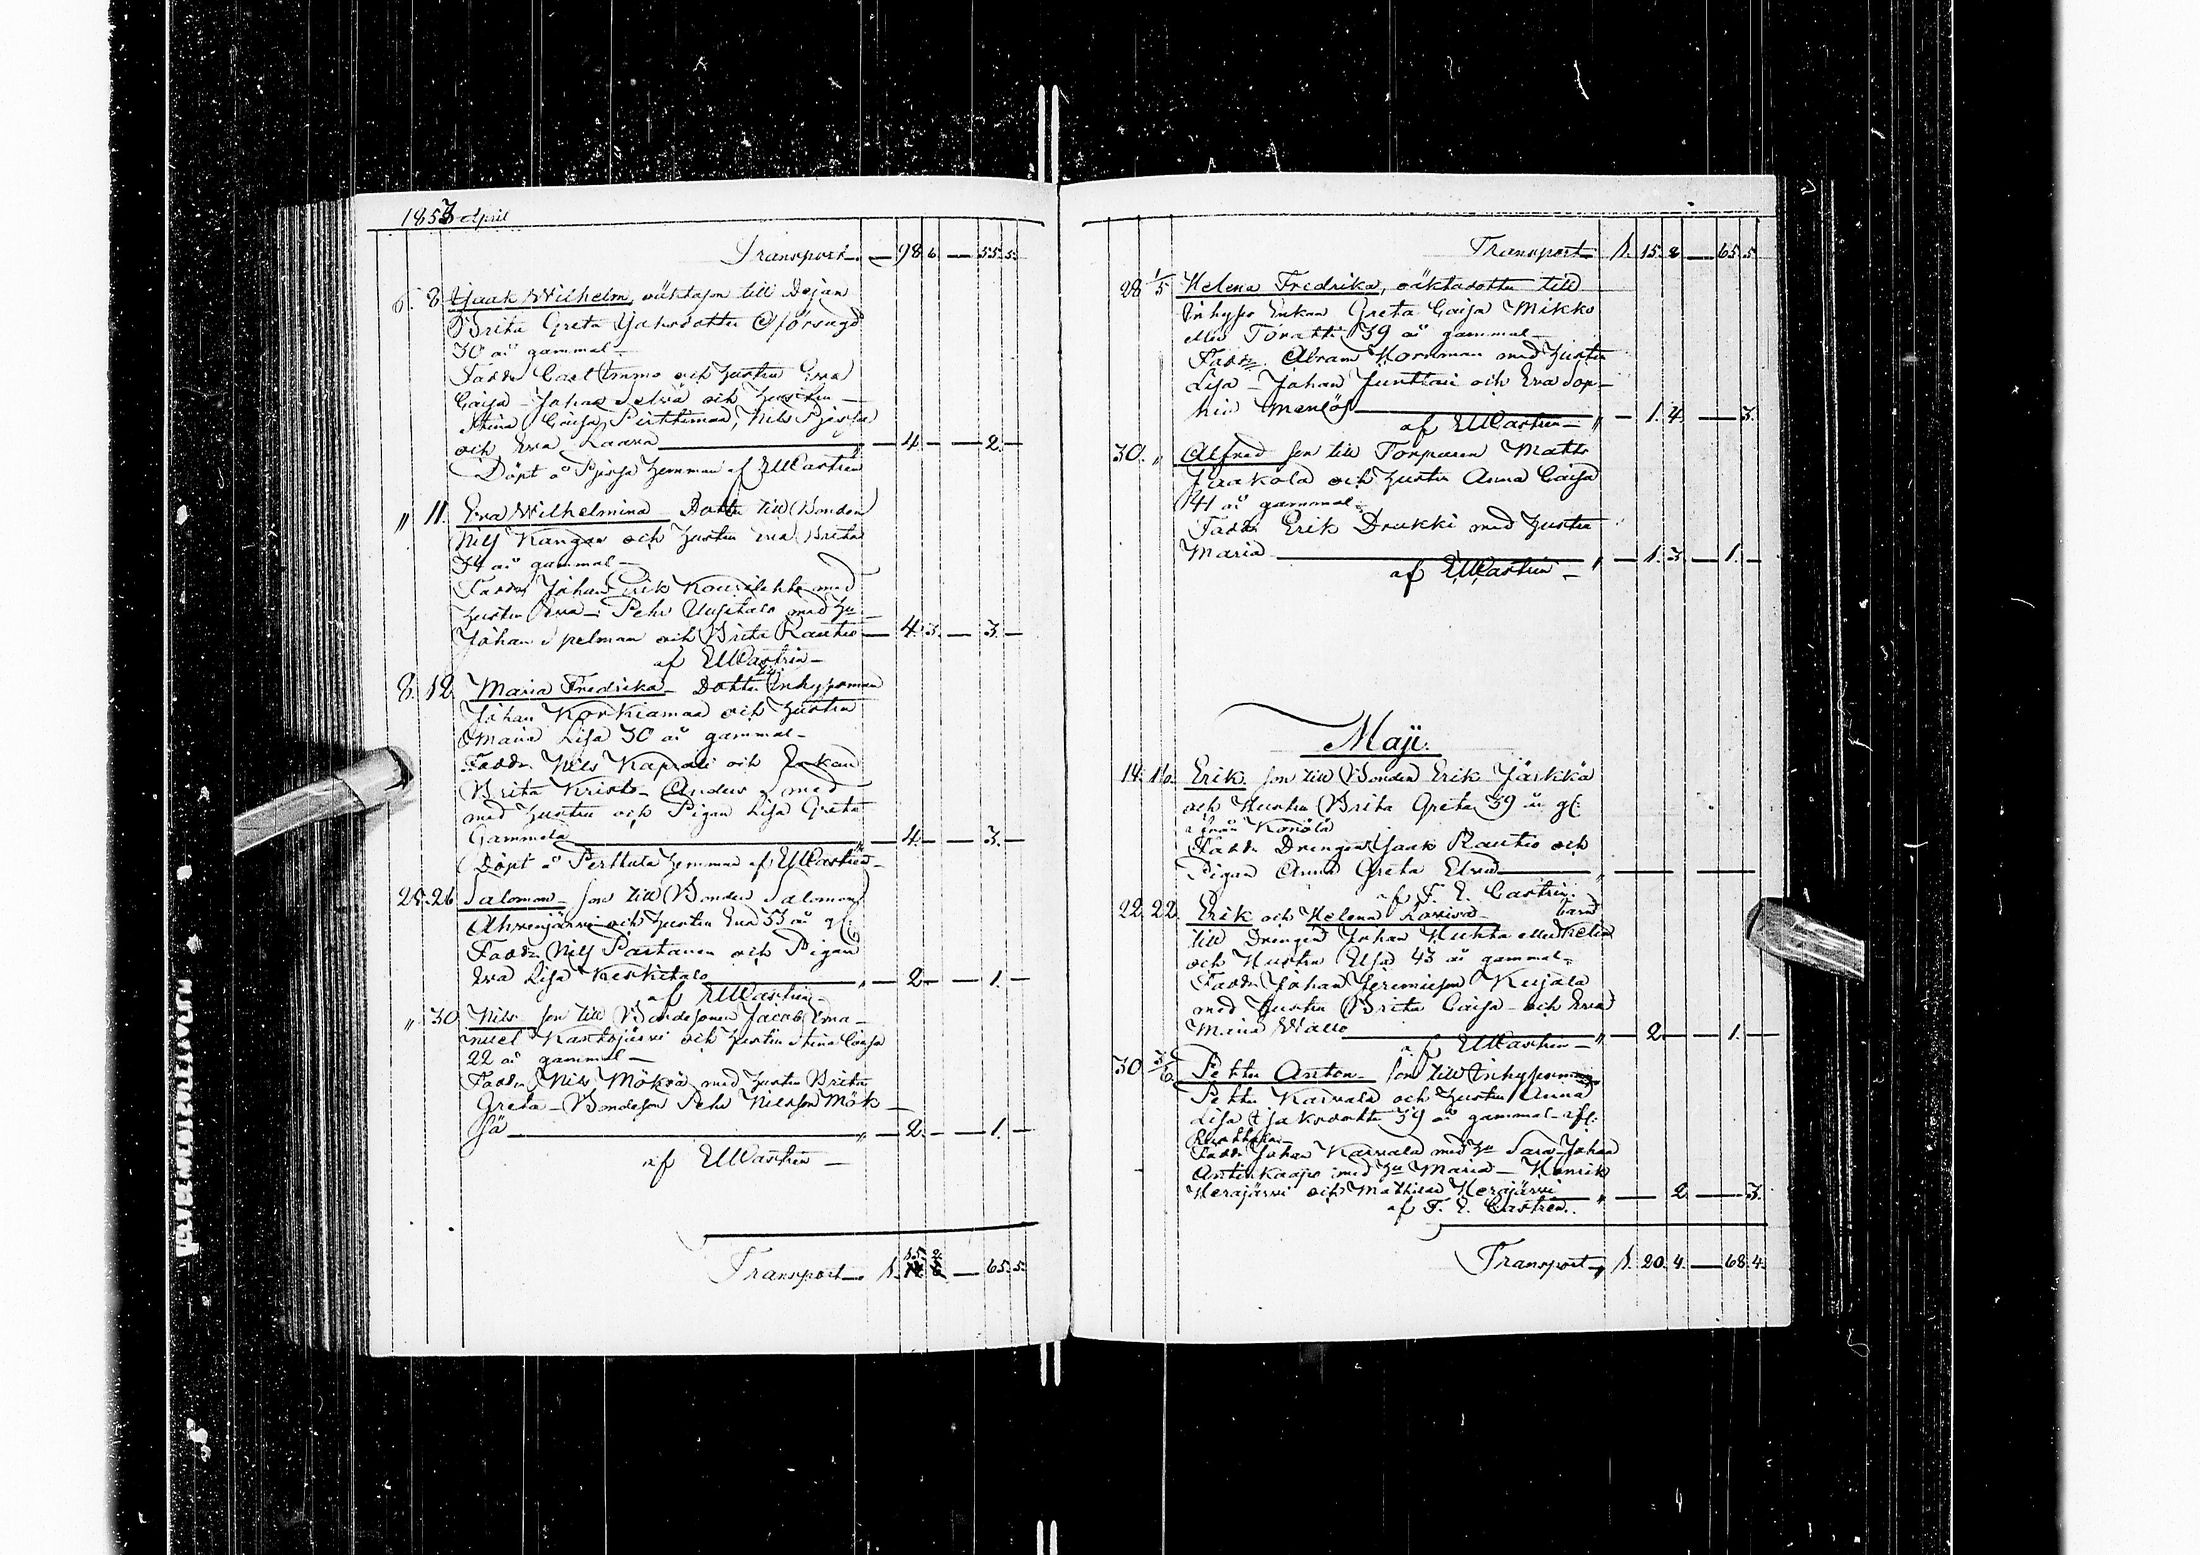 1853 April
Transport — 98. 6. — 55. 5.
6. 8. Isaak Wilhelm, oäktason till Dejan
Brita Greta Jahnsdotter
30 år gammal
Fadd. Carl Emmo och hustru Eva
Caisa – Johan Selvä och hustru
Stina Caisa Pirttimaa, Nils
och Eva Laara — 4. — 2. —
Döpt å hemman af EMCastrén
" 11. Eva Wilhelmina Dotter till Bonden
Nils Kangas och hustru Eva Brita
34 år gammal –
Fadd. Johan Erik med
hustru Eva – Pehr Uusitalo med hu
Johan Spelman och Brita Rautio — 4. 3. — 3. —
af EMCastrén –
8. 12. Maria Fredrika – Dotter till Inhysesman
Johan Korkiamaa och hustru
Maria Lisa 30 år gammal –
Fadd. Nils och Enkan
Brita Anders med
med hustru och Pigan Lisa Greta
Gammela — 4. — 3. —
Döpt å Perttula hemman af EMCastrén
25. 26. Salomon – son till Bonden Salomon
Ahvenjärvi och hustru Eva 33 år gl:
Fadd. Nils Partanen och Pigan
Eva Lisa Keskitalo — " — 2. — 1. —
af EMCastrén –
" 30. Nils son till Bondesonen Jacob Ema-
nuel Raatojärvi och hustru Stina Caisa
22 år gammal –
Fadd. Nils Möksä med hustru Brita
Greta – Bondeson Pehr Nilsson Mök-
sä — " — 2. — 1. —
af EMCastrén –
Transport — 1. 15. 2. — 65. 5.
Transport — 1. 15. 2. — 65. 5.
28. 1/5 Helena Fredrika, oäktadotter till
Inhyses Enkan Greta Caisa Mikko
eller Toratti 39 år gammal –
Fadd. Abram Kornman med hustru
Lisa – Johan Junttari och Eva Sop-
hia Manlöf
af EMCastrén – " — 1. 4. — 3.
30. " Alfred son till Torparen Matts
Jaakola och hustru Anna Caisa
41 år gammal –
Fadd. Erik Drukki med hustru
Maria — " — 1. 3. — 1. —
af EMCastrén –
Maji.
14. 16. Erik son till Bonden Erik Järkkä
och Hustru Brita Greta 39 år gl:
från Konölä
Fadd. Drengen Isaak Rautio och
Pigan Anna Greta — "
af F. E. Castrén.
22. 22. Erik och Helena Lovisa – barn
till Drengen Johan Huhta eller
och Hustru Elsa 43 år gammal –
Fadd. Johan Jeremiasson Kujala
med Hustru Brita Caisa – och Eva
Maria — " — 2. — 1. —
af EMCastrén –
30. 3/6 Petter Anton – son till Inhysesman
Petter Karvala och hustru Anna
Lisa Isaksdotter 39 år gammal
Fadd. Johan Karvala med hu Sara – Johan
Antinkaapo med hu Maria – Henrik
Herajärvi och Mathilda Herajärvi — " — 2. — 3.
af F. E. Castrén.
Transport — 1. 20. 4. — 68. 4.